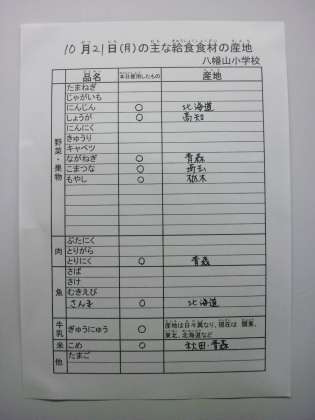 10月21日(月)の主な給食食材の産地
八幡山小学校
品名 本日使用したもの 産地
野菜・果物
たまねぎ
じゃがいも
にんじん ○ 北海道
しょうが ○ 高知
にんにく
きゅうり
キャベツ
ながねぎ ○ 青森
こまつな ○
もやし ○ 栃木
肉
ぶたにく
とりがら
とりにく ○ 青森
魚
さば
さけ
むきえび
さんま ○ 北海道
牛乳 ぎゅうにゅう ○ 産地は日々異なり、現在は 関東、
東北、北海道など
米 こめ ○ 秋田・青森
他 たまご